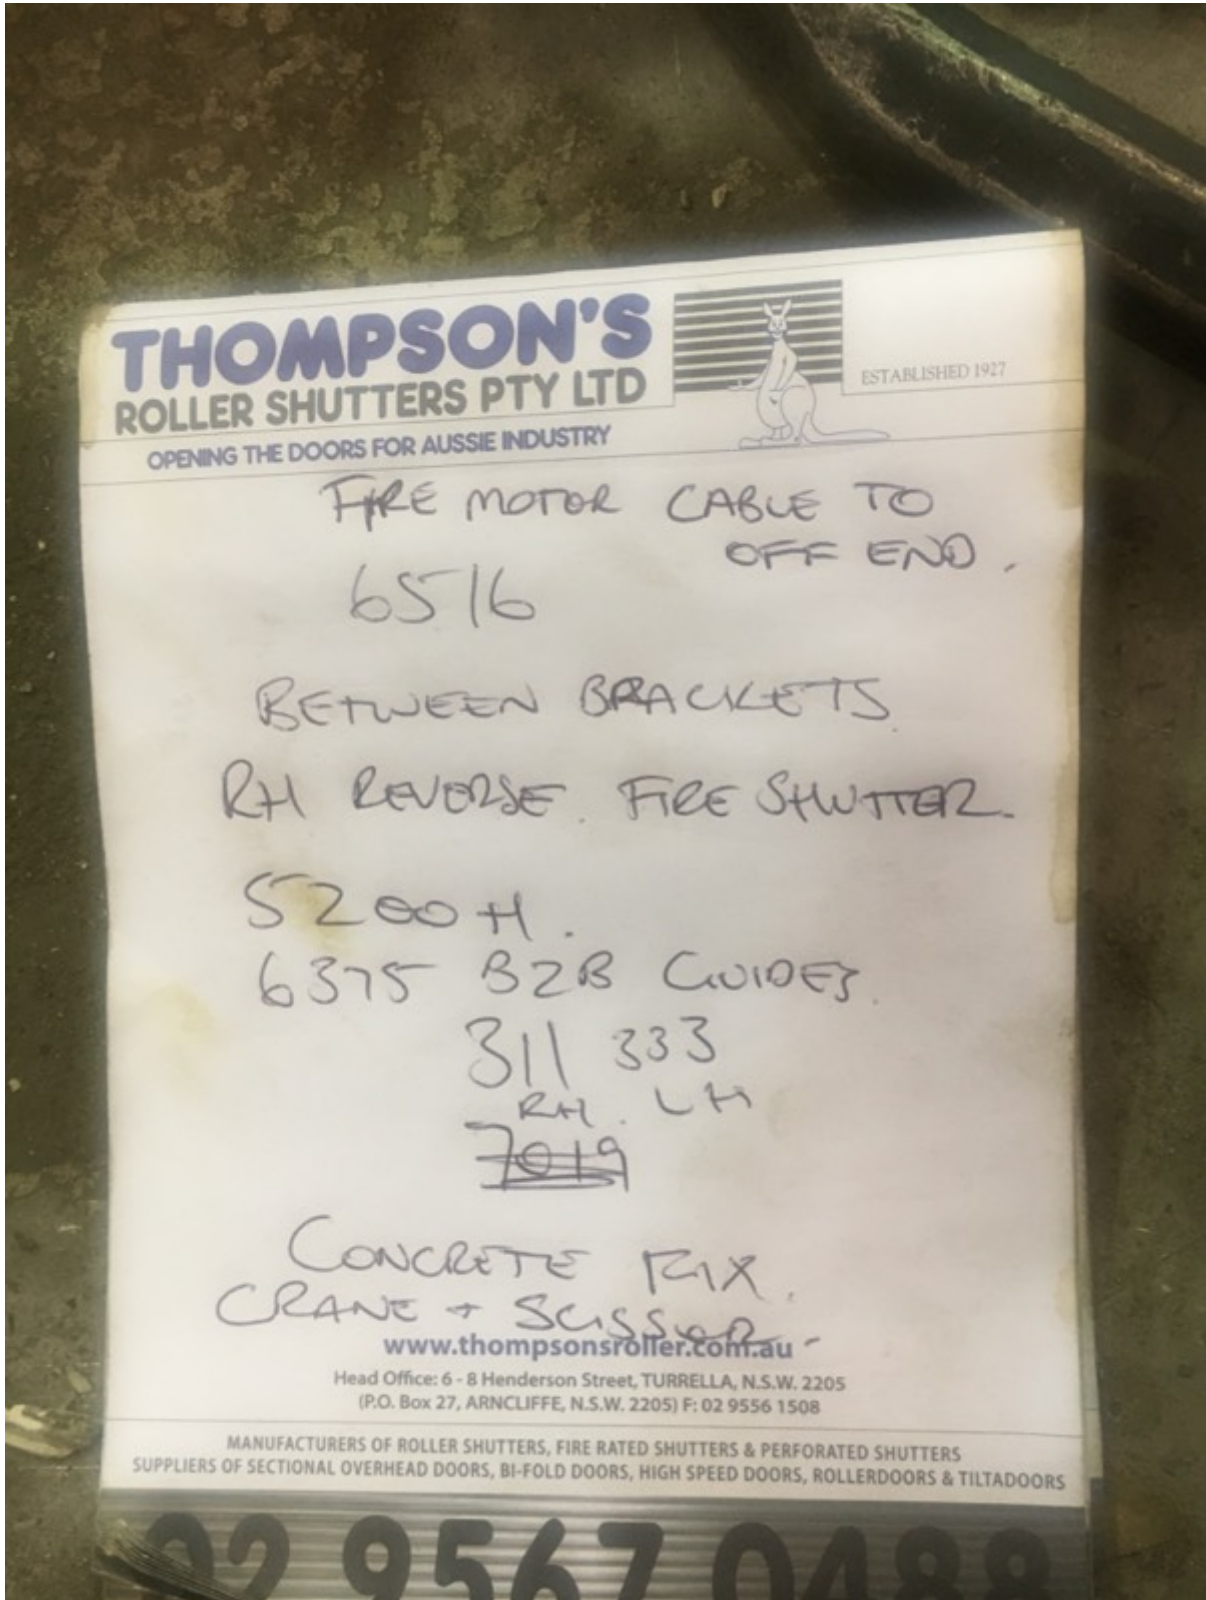 THOMPSON'S
ROLLER SHUTTERS PTY LTD
OPENING THE DOORS FOR AUSSIE INDUSTRY
ESTABLISHED 1927
FIRE MOTOR CABLE TO
OFF END.
6516
BETWEEN BRACKETS
RH REVERSE. FIRE SHUTTER.
5200 H.
6375 B2B GUIDES.
311 333
RH. LH
7019
CONCRETE FIX.
CRANE + SCISSOR.
www.thompsonsroller.com.au
Head Office: 6 - 8 Henderson Street, TURRELLA, N.S.W. 2205
(P.O. Box 27, ARNCLIFFE, N.S.W. 2205) F: 02 9556 1508
MANUFACTURERS OF ROLLER SHUTTERS, FIRE RATED SHUTTERS & PERFORATED SHUTTERS
SUPPLIERS OF SECTIONAL OVERHEAD DOORS, BI-FOLD DOORS, HIGH SPEED DOORS, ROLLERDOORS & TILTADOORS
02 9567 0488